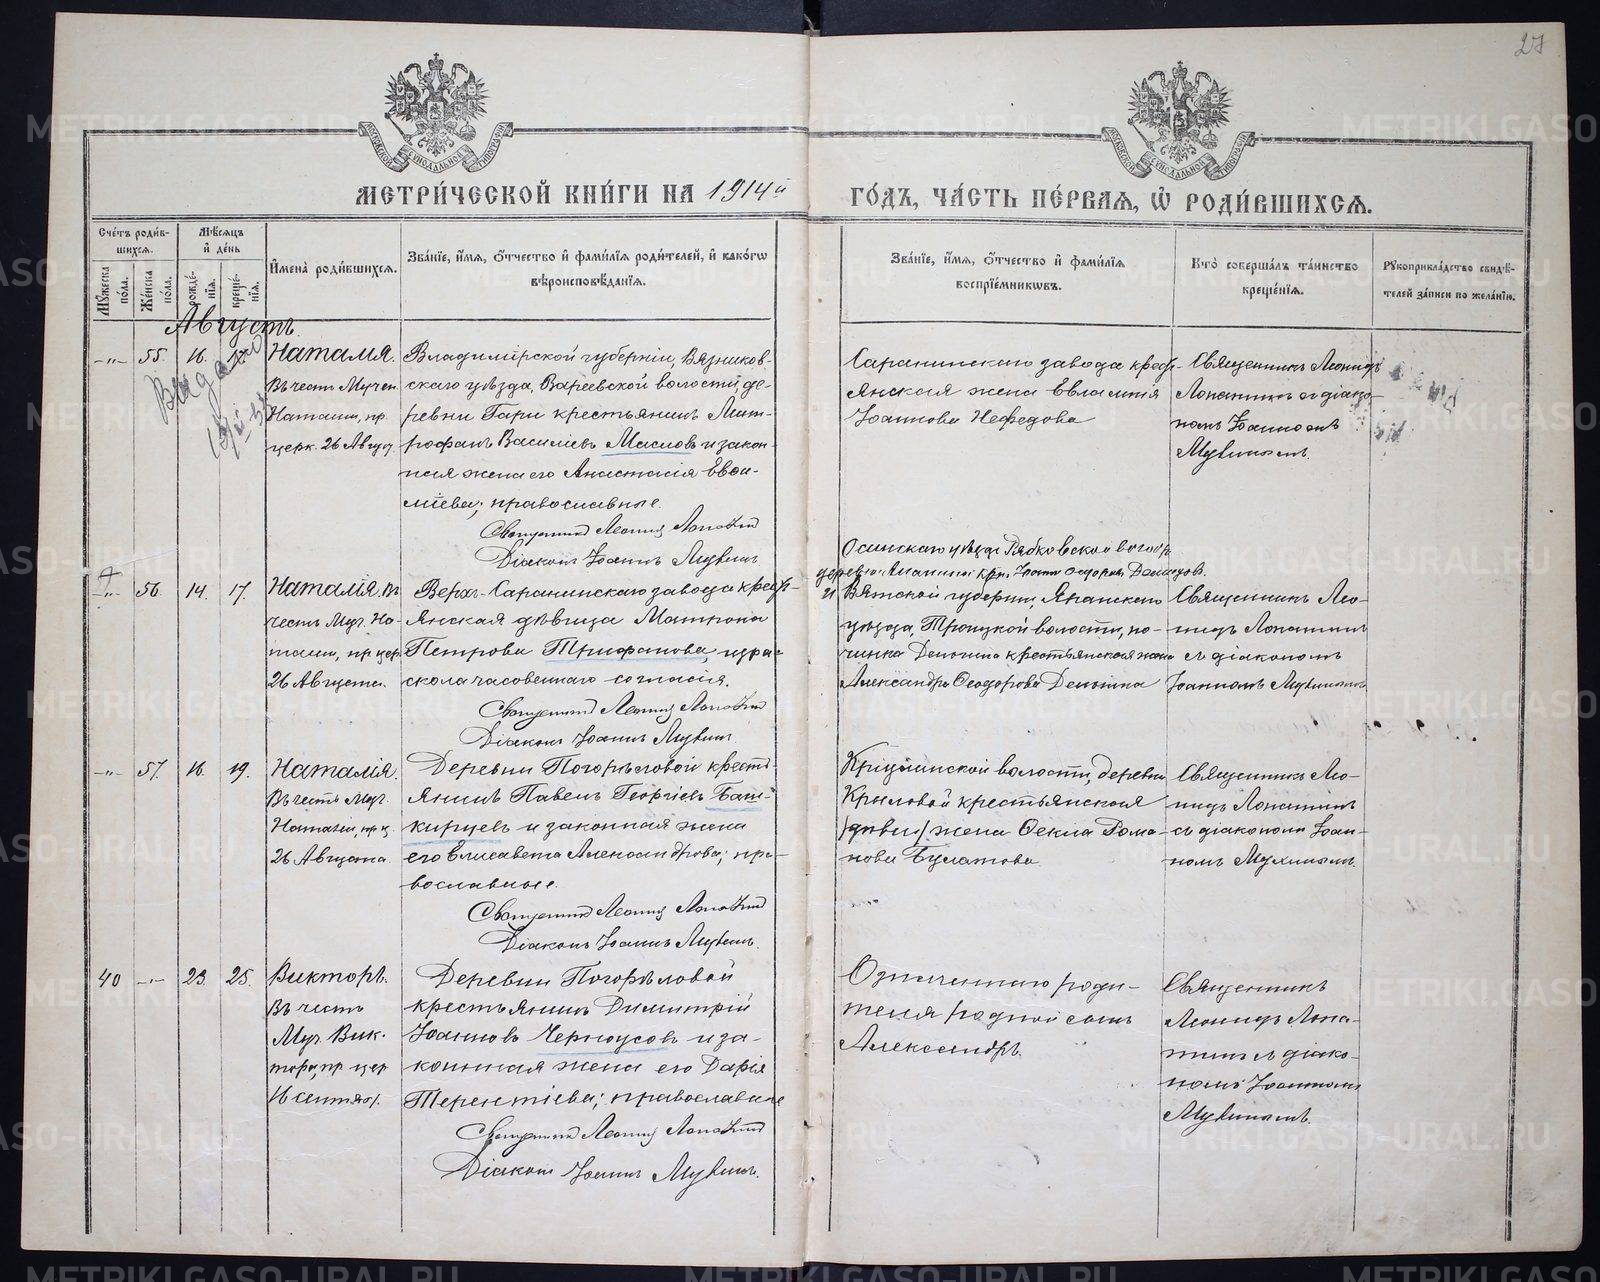 27
МЕТРИ́ЧЕСКОЙ КНИ́ГИ НА 1914й ГО́ДЪ, ЧА́СТЬ ПЕ́РВАЯ, Ѡ РОДИ́ВШИХСЯ.
Сче́тъ роди́в-
шихся.
Мѣ́сяцъ
и҆ де́нь
Мꙋ́жеска по́ла.
Же́нска по́ла.
рожде́-
нїя.
креще́-
нїя.
И҆мена̀ роди́вшихся.
Зва́нїе, и҆́мя, ѻ҆́тчество и҆ фами́лїя роди́телей, и҆ како́гѡ
вѣроисповѣ́данїя.
Зва́нїе, и҆́мя, ѻ҆́тчество и҆ фами́лїя
воспрїе́мникѡвъ.
Кто̀ соверша́лъ та́инство
креще́нїя.
Рꙋкоприкла́дство свидѣ́-
телей за́писи по жела́нїю.
Августъ
-"- 55. 16. 17.
Наталія.
Въ честь Мучен.
Наталіи, пр.
церк. 26 Август.
Владимірской губерніи, Вязников-
скаго уѣзда, Вареевской волости, де-
ревни Гари крестьянинъ Мит-
рофанъ Василіевъ Масловъ и закон-
ная жена его Анастасія Евфи-
міева; православные.
Священникъ Леонидъ Лопатинъ
Діаконъ Іоаннъ Мухинъ
Саранинскаго завода крест-
янская жена Евлампія
Іоаннова Нефедова
Священникъ Леонидъ
Лопатинъ съ діако-
номъ Іоанномъ
Мухинымъ.
-"- 56. 14. 17.
Наталія. въ
честь Муч. На-
таліи, пр. цер.
26 Августа.
Верхъ-Саранинскаго завода крест-
янская дѣвица Матрона
Петрова Трифанова, изъ рас-
кола часовеннаго согласія.
Священникъ Леонидъ Лопатинъ
Діаконъ Іоаннъ Мухинъ
Осинскаго уѣзда Рябковской волос.
деревни Ананиной кр. Іоаннъ Ѳедоровъ
и Вятской губерніи, Яранскаго
уѣзда, Троицкой волости, по-
чинка крестьянская жена
Александра Ѳеодорова
Священникъ Лео-
нидъ Лопатинъ
съ діакономъ
Іоанномъ Мухинымъ
-"- 57. 16. 19.
Наталія.
Въ честь Муч.
Наталіи, пр. ц.
26 Августа.
Деревни Погорѣловой кресть-
янинъ Павелъ Георгіевъ Баш-
кирцевъ и законная жена
его Елисавета Александрова; пра-
вославные.
Священникъ Леонидъ Лопатинъ
Діаконъ Іоаннъ Мухинъ.
волости, деревни
Крыловой крестьянская
жена Ѳекла Рома-
нова Булатова
Священникъ Лео-
нидъ Лопатинъ
съ діакономъ Іоан-
номъ Мухинымъ.
40 -"- 23. 25.
Викторъ.
Въ честь
Муч. Вик-
тора, пр. цер.
16 сентяб.
Деревни Погорѣловой
крестьянинъ Димитрій
Іоанновъ Черноусовъ и за-
конная жена его Дарія
Терентіева; православные
Священникъ Леонидъ Лопатинъ
Діаконъ Іоаннъ Мухинъ.
Означеннаго роди-
теля родной сынъ
Александръ.
Священникъ
Леонидъ Лопа-
тинъ съ діако-
номъ Іоанномъ
Мухинымъ.
METRIKI.GASO-URAL.RU